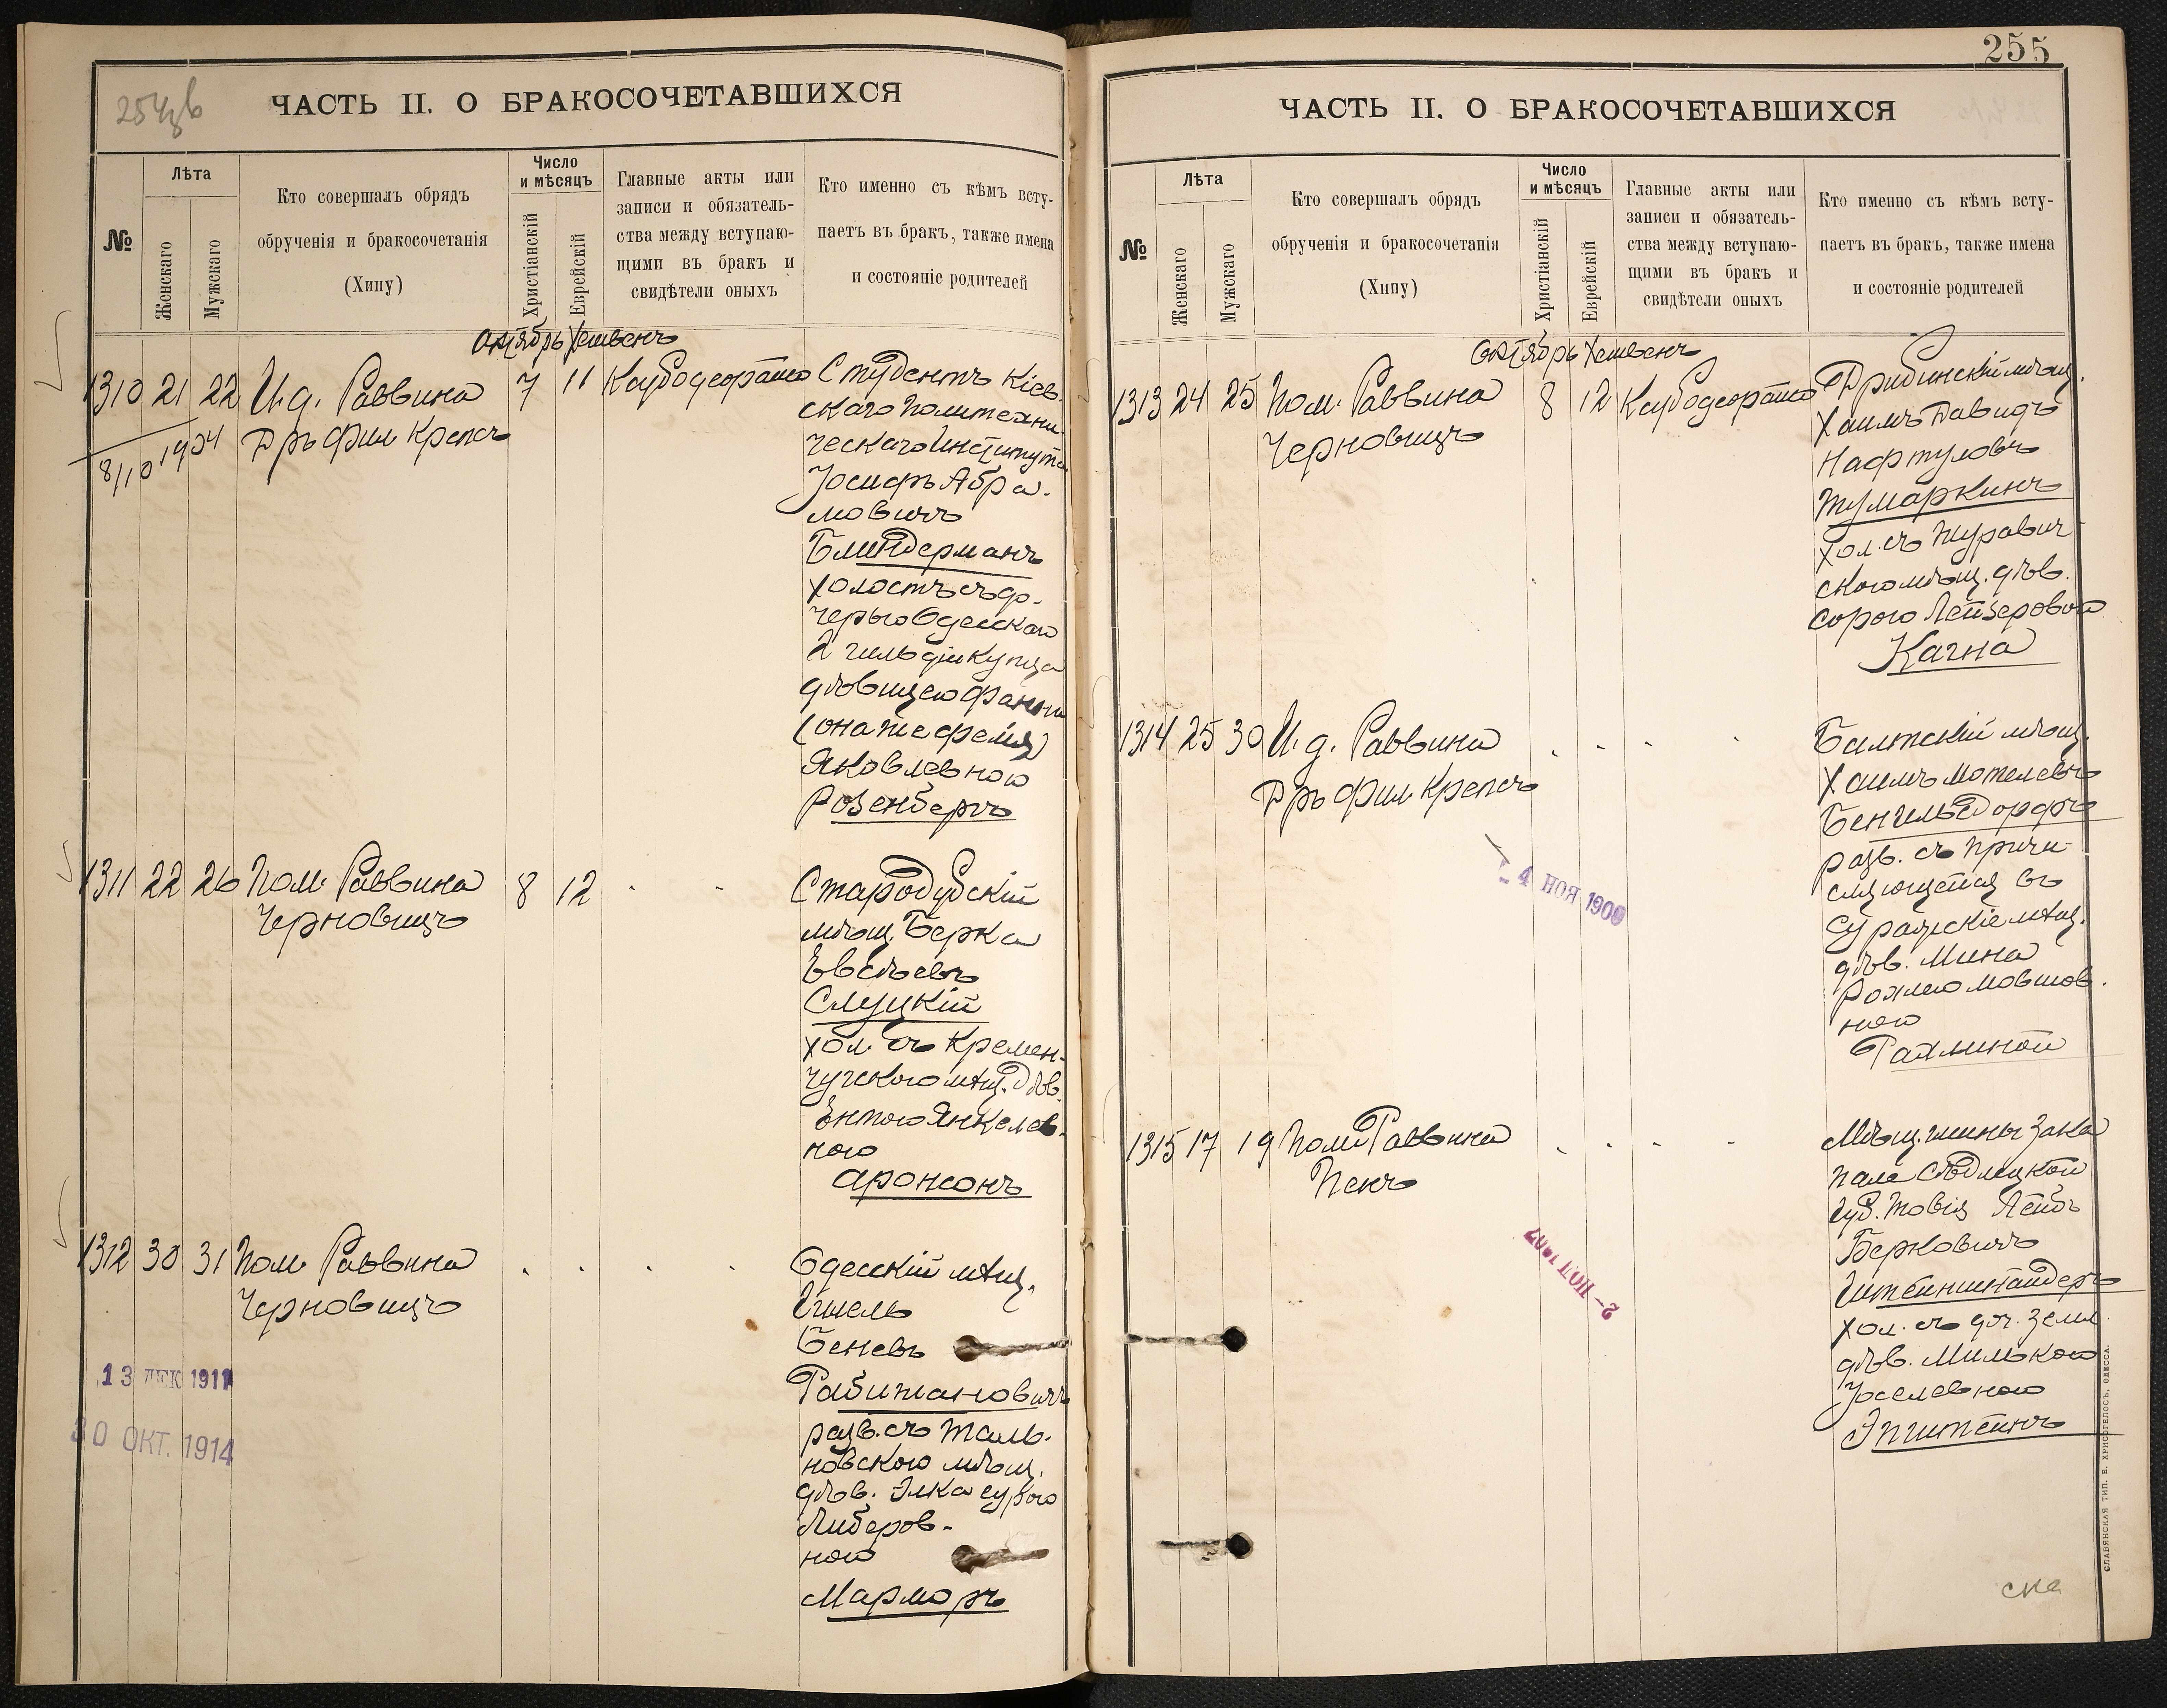 254зв
ЧАСТЬ II. О БРАКОСОЧЕТАВШИХСЯ
№
Лѣта
Женскаго
Мужскаго
Кто совершалъ обрядъ
обрученія и бракосочетанія
(Хипу)
Число
и мѣсяцъ
Христіанскій
Еврейскій
Главные акты или
записи и обязатель-
ства между вступаю-
щими въ бракъ и
свидѣтели оныхъ
Кто именно съ кѣмъ всту-
паетъ въ бракъ, также имена
и состояніе родителей
Октябрь Хешвенъ
1310 21 22 И. д. Раввина 7 11
8/10 1904 Д-ръ Фил. Крепсъ
Студентъ Кіев-
скаго Политехни-
ческаго Института
Іосифъ Абра-
мовичъ
Блиндерманъ
холостъ съ до-
черью Одесскаго
2 гильдіи купца
дѣвицею Фанни
(она же Фейга)
Яковлевною
Розенбергъ
1311 22 26 Пом. Раввина 8 12
Черновицъ
Стародубскій
мѣщ. Берка
Евсѣевъ
Слуцкій
хол. съ Кремен-
чугскою мѣщ. дѣв.
Ентою Янкелев-
ною
Аронсонъ
1312 30 31 Пом. Раввина
Черновицъ
13 ДЕК 1911
30 ОКТ. 1914
Одесскій мѣщ.
Беневъ
Рабинановичъ
разв. съ Таль-
новскою мѣщ.
дѣв. Элка Сурою
Либеров-
ною
Марморъ
255
ЧАСТЬ II. О БРАКОСОЧЕТАВШИХСЯ
№
Лѣта
Женскаго
Мужскаго
Кто совершалъ обрядъ
обрученія и бракосочетанія
(Хипу)
Число
и мѣсяцъ
Христіанскій
Еврейскій
Главные акты или
записи и обязатель-
ства между вступаю-
щими въ бракъ и
свидѣтели оныхъ
Кто именно съ кѣмъ всту-
паетъ въ бракъ, также имена
и состояніе родителей
Октябрь Хешвенъ
1313 24 25 Пом. Раввина 8 12
Черновицъ
Дрибинскій мѣщ.
Хаимъ Давидъ
Нафтуловъ
Тумаркинъ
хол. съ Журавич-
скою мѣщ. дѣв.
Сорою Лейзеровой
Кагна
1314 25 30 И. д. Раввина
Д-ръ Фил. Крепсъ
4 НОЯ 1900
Балтскій мѣщ.
Хаимъ Мотелевъ
Бенгельсдорфъ
разв. съ причи-
сляющейся въ
Суражскіе мѣщ.
дѣв. Мина
Рохлею Мовшов-
ною
Райхлиной
1315 17 19 Пом. Раввина
Пенъ
Мѣщ. гмины Зака
нале Сѣдлецкой
губ. Товія Лейбъ
Берковичъ
Штейншнайдеръ
хол. съ доч. земл.
дѣв. Милькою
Іоселевною
Эпштейнъ
СЛАВЯНСКАЯ ТИП. Е. ХРИСОГЕЛОСЪ, ОДЕССА.